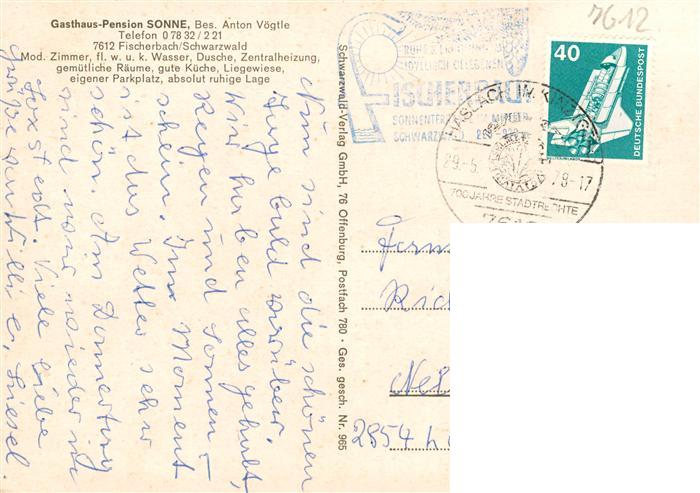 Gasthaus-Pension SONNE, Bes. Anton Vögtle
Telefon 0 78 32 / 2 21
7612 Fischerbach/Schwarzwald
Mod. Zimmer, fl. w. u. k. Wasser, Dusche, Zentralheizung,
gemütliche Räume, gute Küche, Liegewiese,
eigener Parkplatz, absolut ruhige Lage
Nun sind die schönen
Tage bald vorüber.
Wir haben alles gehabt,
Regen und Sonnen-
schein. Im Moment
ist das Wetter sehr
schön. Am Donnerstag
sind wir wieder in
Loxstedt. Viele liebe
Grüße von Willi u. Liesel
Schwarzwald-Verlag GmbH, 76 Offenburg, Postfach 780 · Ges. gesch. Nr. 965
7612
IDYLLISCH GELEGENEN
FISCHERBACH
SCHWARZWALD
HASLACH IM KINZIGTAL
29.-5. 78-17
700 JAHRE STADTRECHTE
7612
40
DEUTSCHE BUNDESPOST
2854